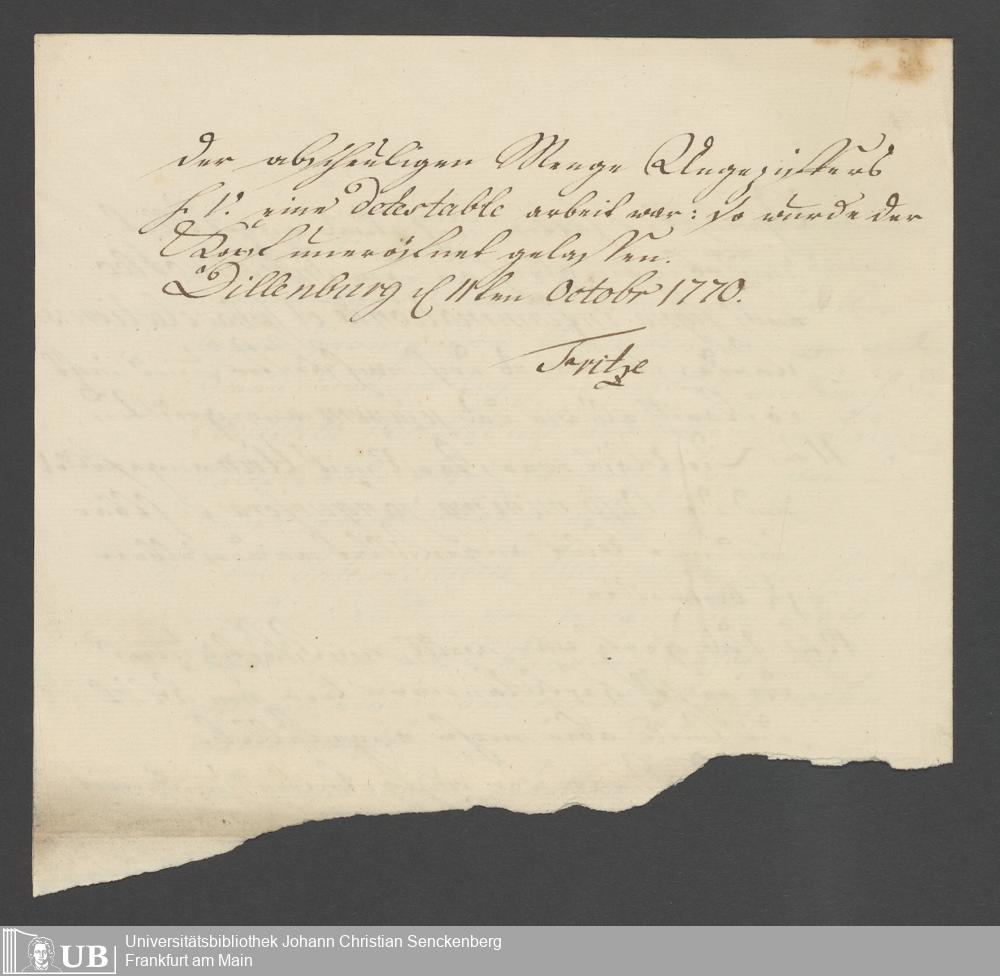 der abscheuligen Menge Ungeziffers
s. v. eine detestable arbeit war: so wurde der
Kopf uneröfnet gelassen.
Dillenburg d 11ten Octobr 1770.
Fritze
UB
Universitätsbibliothek Johann Christian Senckenberg
Frankfurt am Main